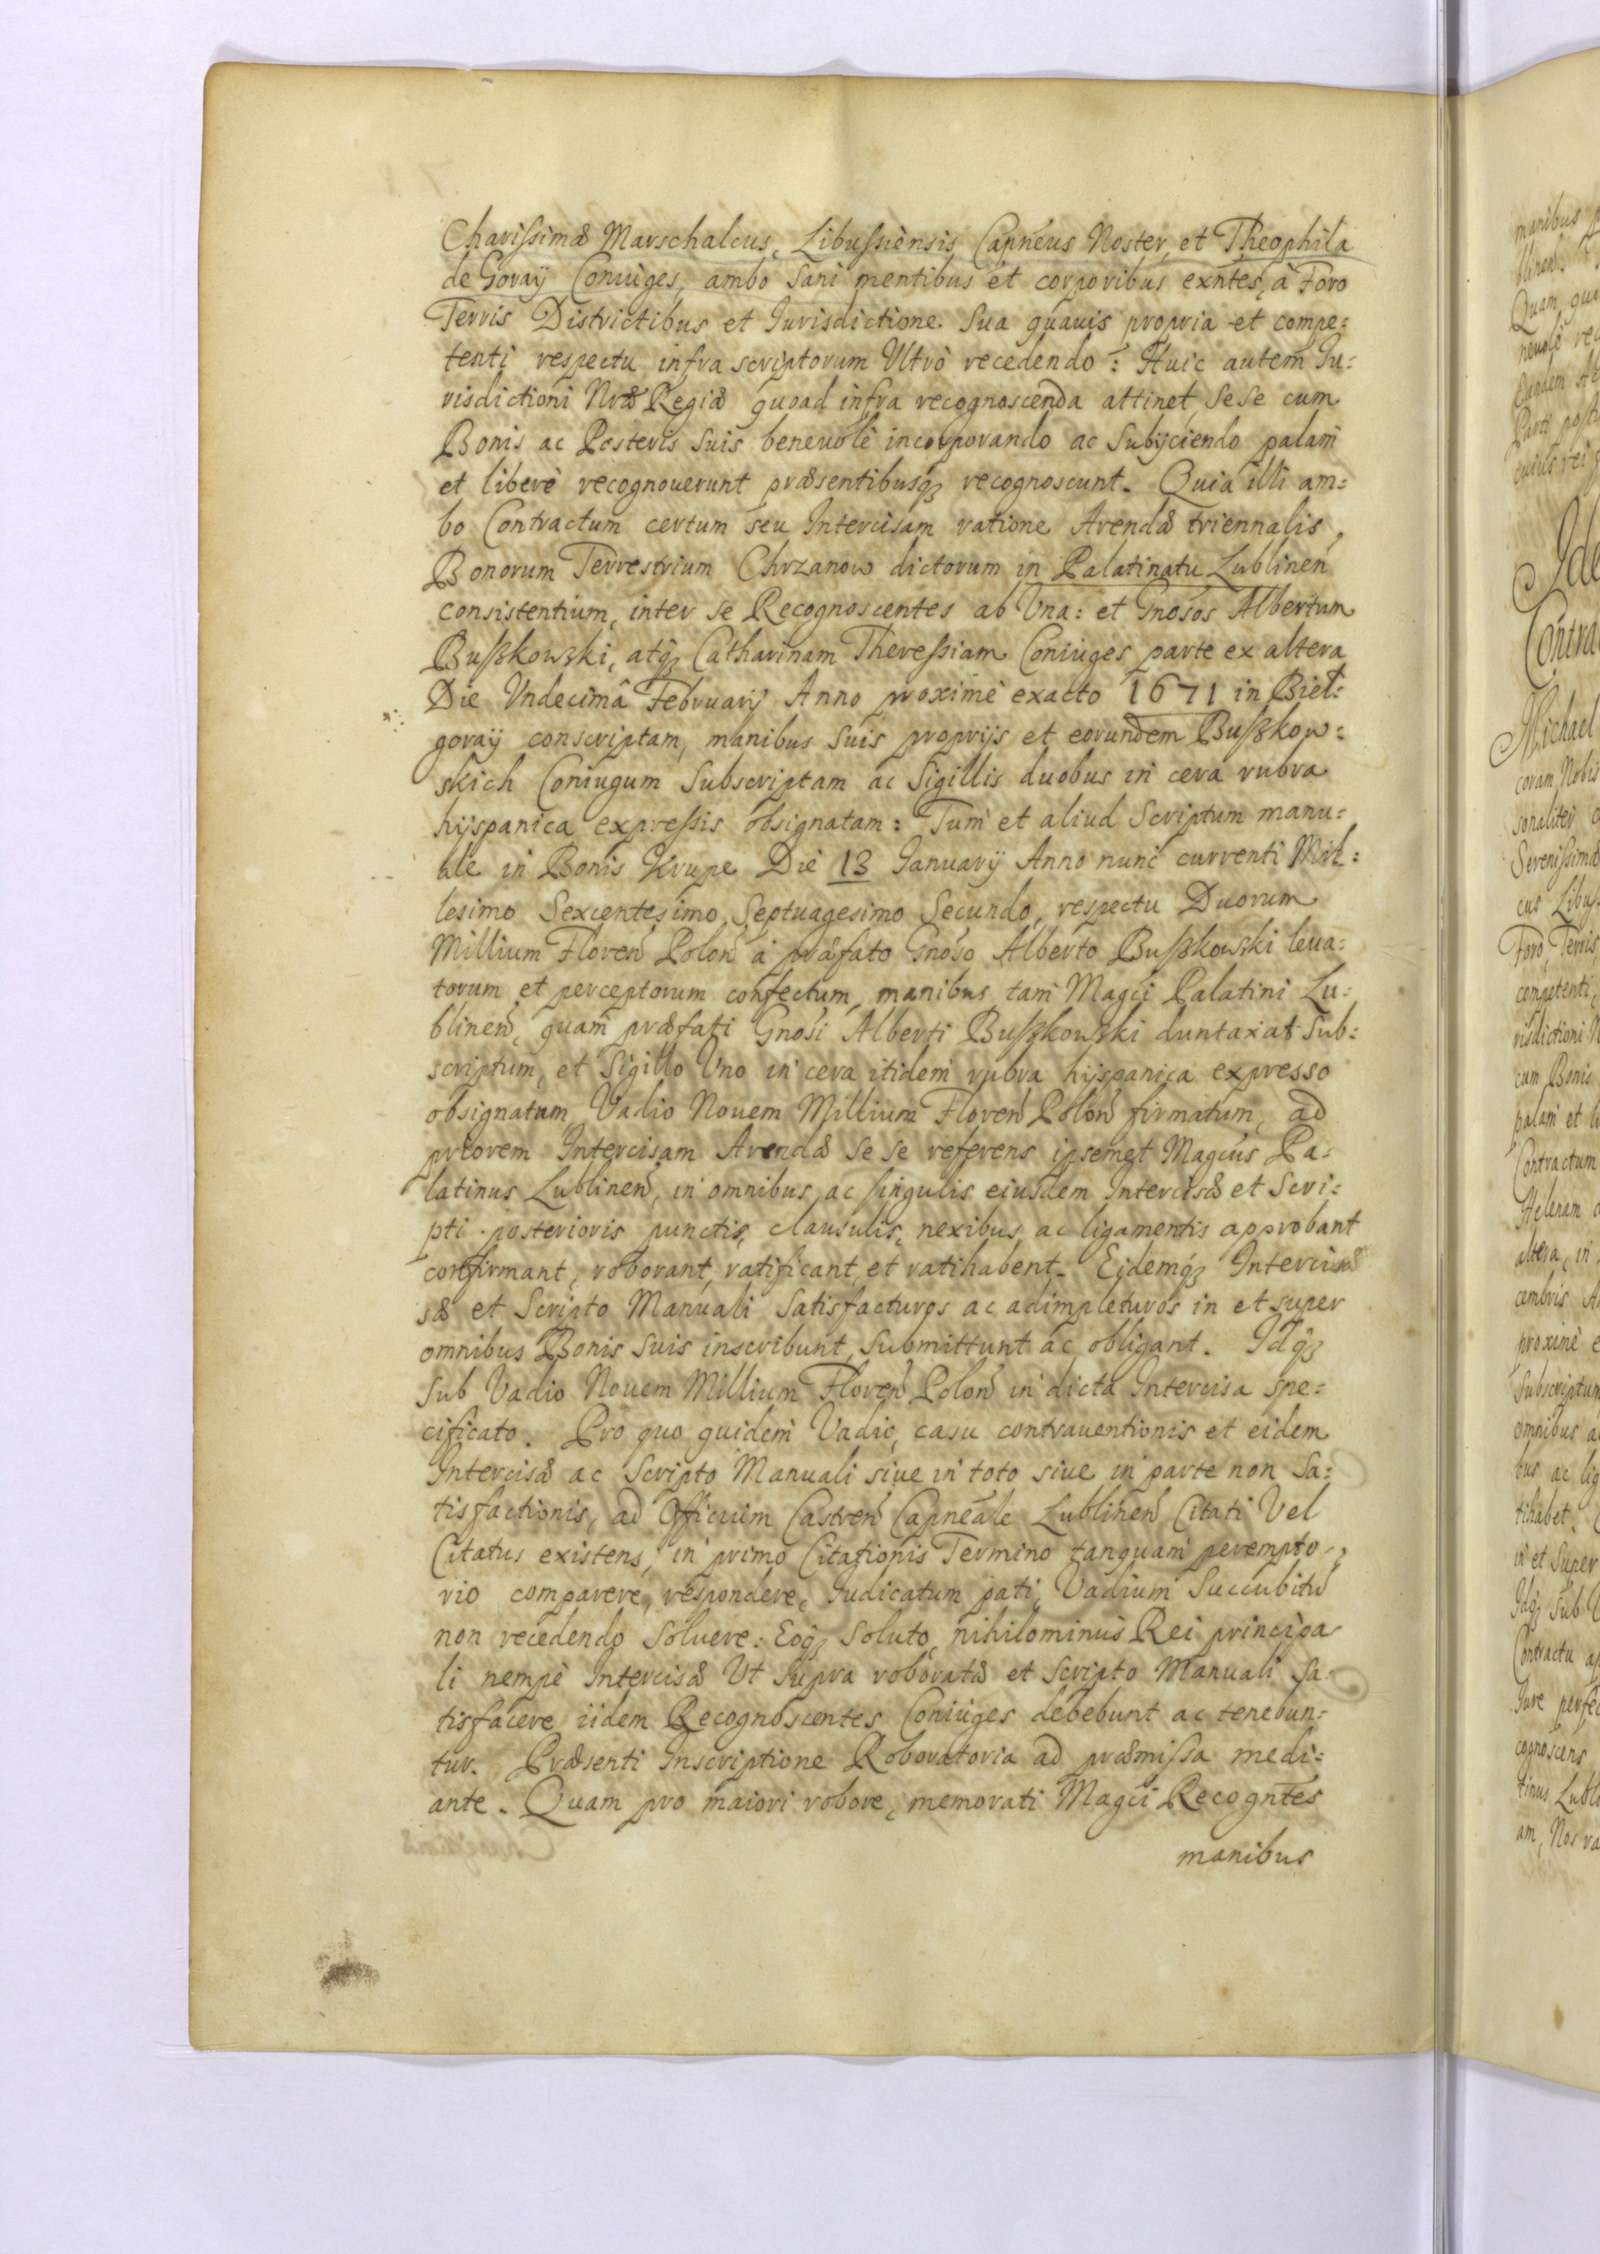 Charissimæ Marschalcus, Libussiensis Capneus Noster, et Theophila
de Goray Coniuges, ambo sani mentibus et corporibus exntes, à Foro
Terris Districtibus et Iurisdictione sua quavis propria et compe:
tenti respectu infra scriptorum Ultrò recedendo: Huic autem Iu:
risdictioni Nræ Regiæ quoad infra recognoscenda attinet, sese cum
Bonis ac Posteris suis beneuolè incorporando ac subijciendo palam
et liberè recognouerunt præsentibusq3 recognoscunt. Quia illi am:
bo Contractum certum seu Intercisam ratione Arendæ triennalis,
Bonorum Terrestrium Chrzanow dictorum in Palatinatu Lublinen
consistentium, inter se Recognoscentes ab Una: et Gnosos Albertum
Buszkowski, atq3 Catharinam Theressiam Coniuges parte ex altera
Die Undecimâ Februarij Anno proximè exacto 1671 in Biel:
goraij conscriptam, manibus suis proprijs et eorundem Buszkow:
skich Coniugum subscriptam ac Sigillis duobus in cera rubra
hyspanica expressis obsignatam: Tum et aliud Scriptum manu:
ale in Bonis Krupe Die 13 Ianuarij Anno nunc currenti Mil:
lesimo Sexcentesimo Septuagesimo Secundo, respectu Duorum
Millium Floren Polon à præfato Gnoso Alberto Buszkowski leua:
torum et perceptorum confectum, manibus tam Magci Palatini Lu:
blinen, quam præfati Gnosi Alberti Buszkowski duntaxat sub:
scriptum, et Sigillo Uno in cera itidem rubra hyspanica expresso
obsignatum Vadio Nouem Millium Floren Polon firmatum, ad
priorem Intercisam Arendæ se se referens ipsemet Magcus Pa:
latinus Lublinen, in omnibus ac singulis eiusdem Intercisæ et Scri:
pti posterioris punctis, clausulis, nexibus ac ligamentis approbant
confirmant, roborant, ratificant et ratihabent. Eidemq3 Interci
sæ et Scripto Manuali satisfacturos ac adimpleturos in et super
omnibus Bonis suis inscribunt, submittunt ac obligant. Idq3
sub Vadio Nouem Millium Floren Polon in dicta Intercisa spe:
cificato. Pro quo quidem Vadio, casu contrauentionis et eidem
Intercisæ ac Scripto Manuali siue in toto siue in parte non sa:
tisfactionis, ad Officium Castren Capneale Lublinen Citati Vel
Citatus existens, in primo Citationis Termino tanquam perempto:
rio comparere, respondere, Iudicatum pati, Vadium succubitu
non recedendo soluere: Eoq3 soluto, nihilominus Rei principa
li nempè Intercisæ Ut supra roboratæ et Scripto Manuali sa:
tisfacere iidem Recognoscentes Coniuges debebunt ac tenebun:
tur. Præsenti Inscriptione Roboratoria ad præmissa medi:
ante. Quam pro maiori robore, memorati Magci Recogntes
manibus